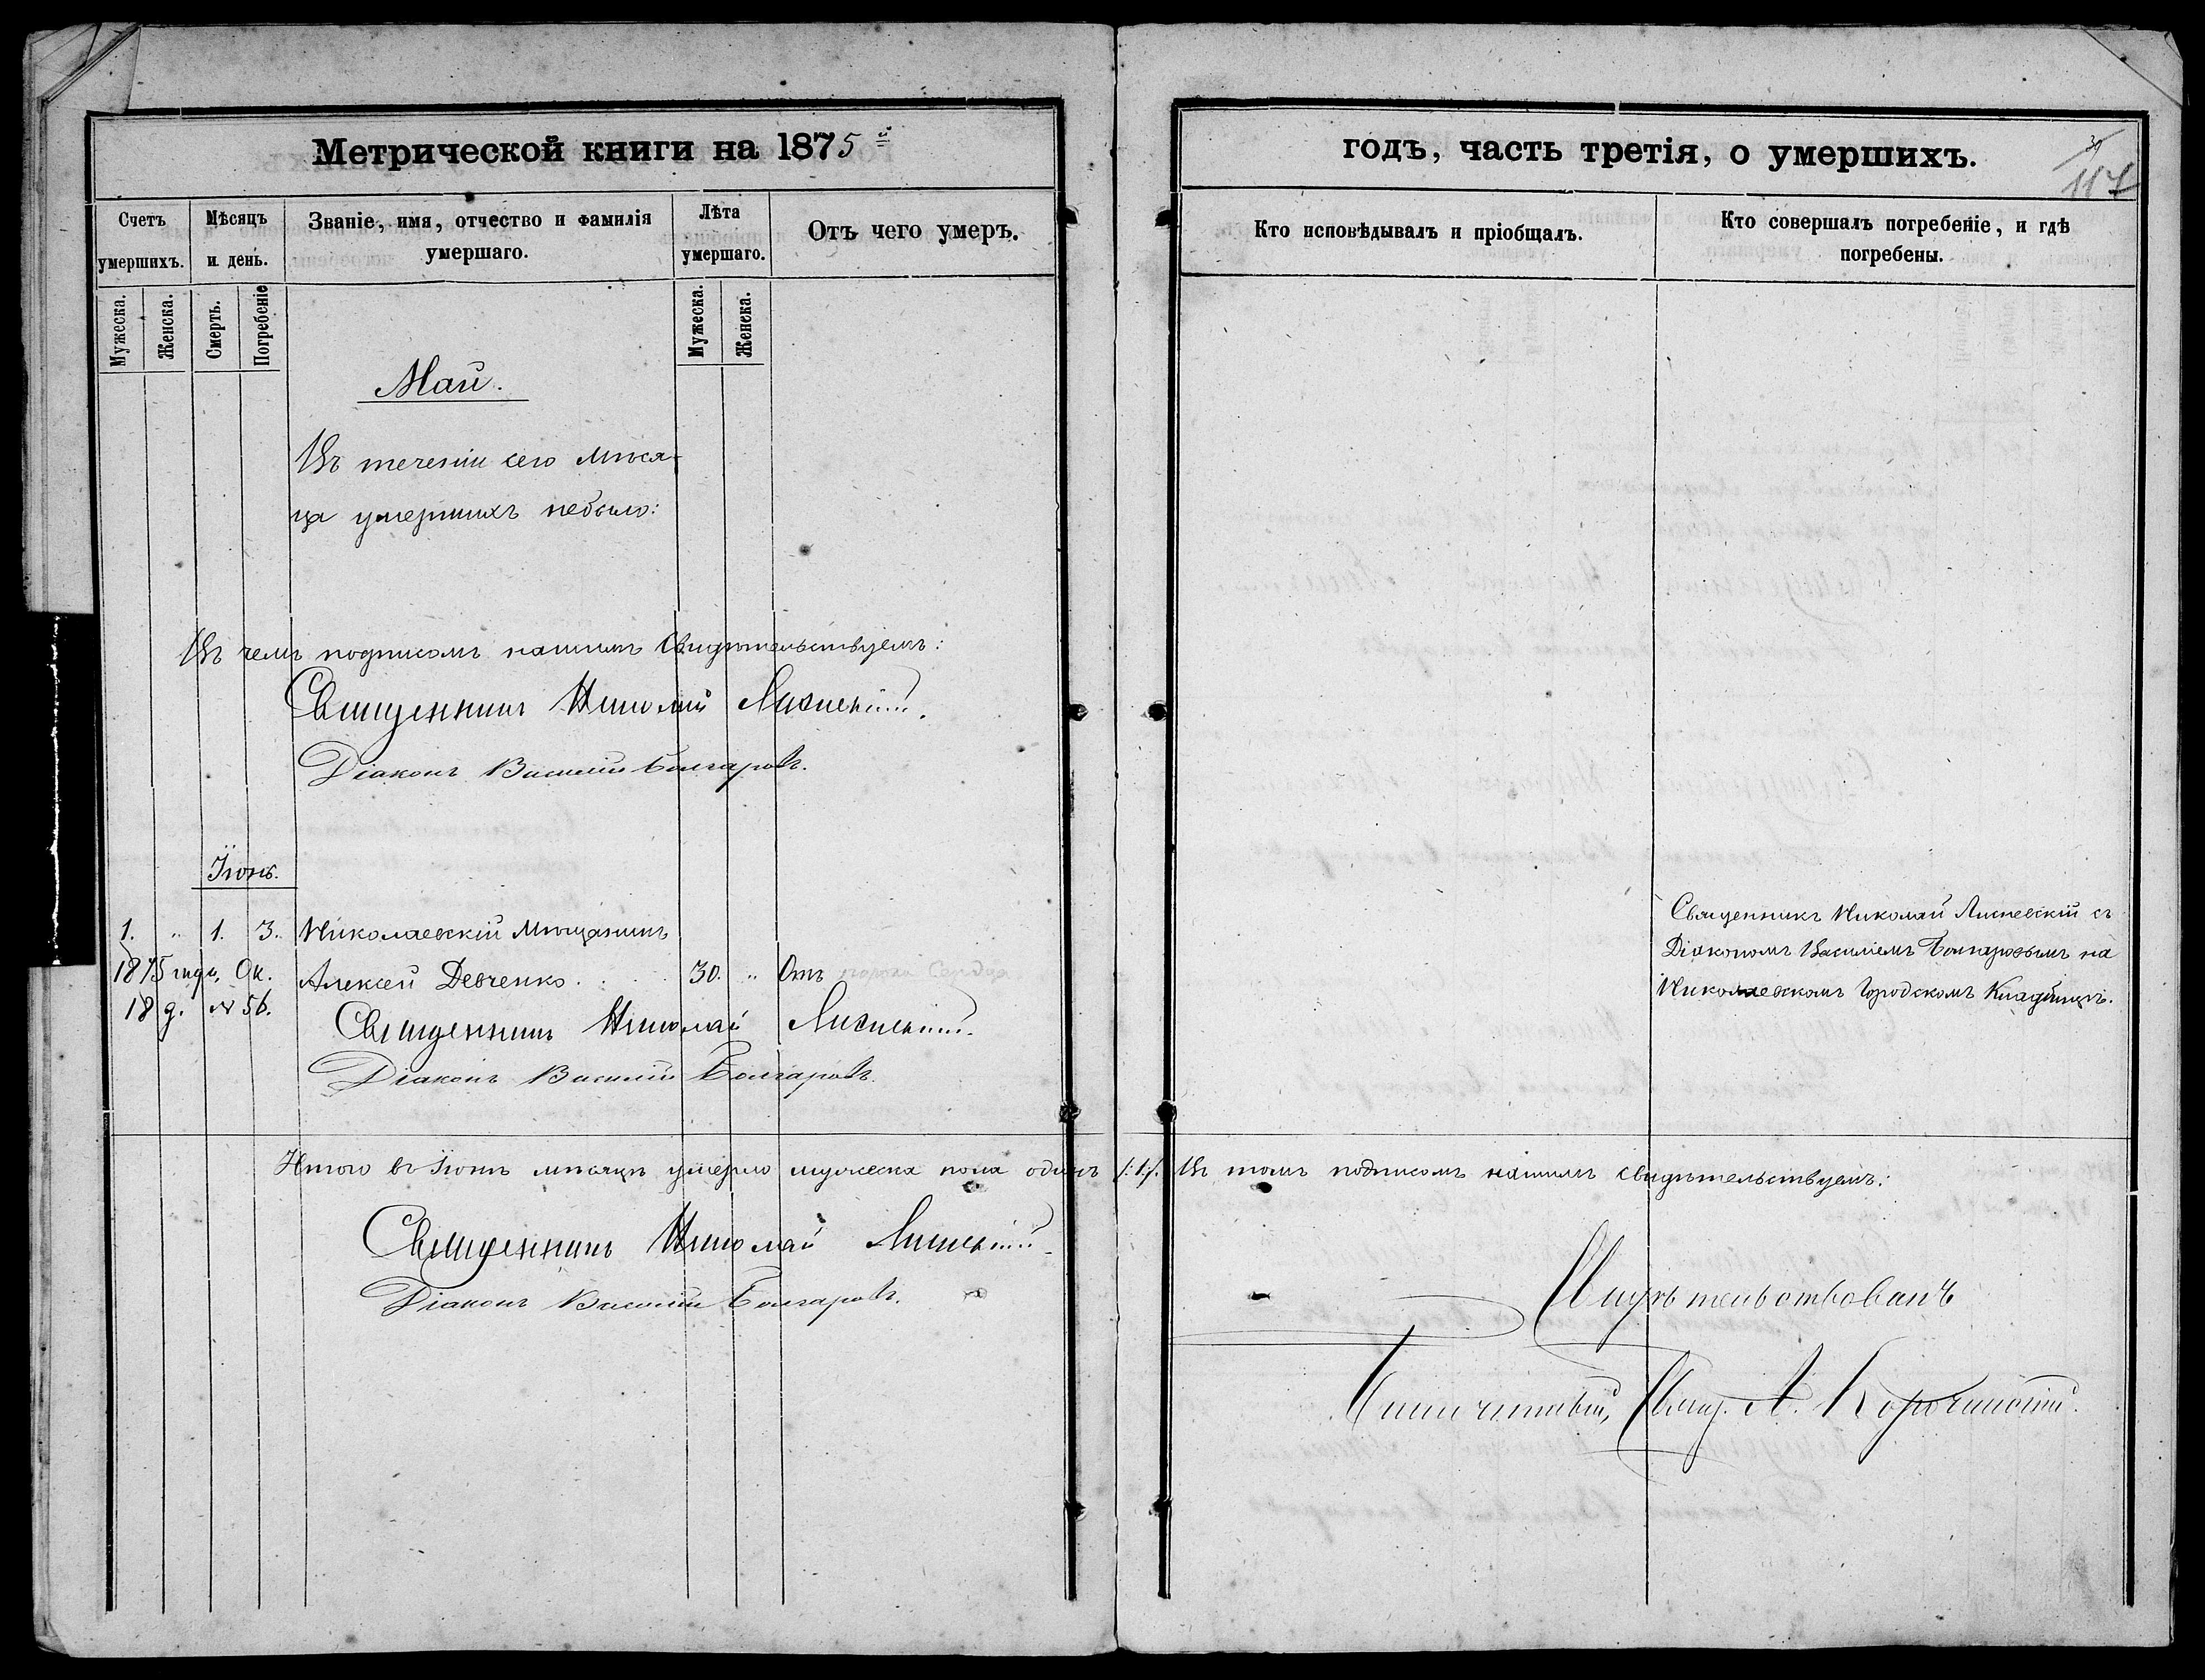 Метрической книги на 1875й
годъ, часть третія, о умершихъ.
117
Счетъ умершихъ.
Мѣсяцъ и день.
Званіе, имя, отчество и фамилія умершаго.
Лѣта умершаго.
Отъ чего умеръ.
Кто исповѣдывалъ и пріобщалъ.
Кто совершалъ погребеніе, и гдѣ погребены.
Мужеска.
Женска.
Смерть.
Погребеніе
Мужеска.
Женска.
Май.
Въ теченіи сего мѣся-
ца умершихъ небыло:
Въ чемъ подписомъ нашимъ свидѣтельствуемъ:
Священникъ Николай
Діаконъ Василій Болгаровъ.
Іюнь.
1. " 1. 3. Николаевскій Мѣщанинъ
1875 года, Ок. Алексей Девченко. 30. " Отъ порока Сердца
18 д. № 56.
Священникъ Николай
Діаконъ Василій Болгаровъ.
Священникъ Николай Лисневскій съ
Діакономъ Василіемъ Болгаровымъ на
Николаевскомъ Городскомъ Кладбищѣ.
Итого въ Іюнѣ мѣсяцѣ умерло мужеска пола одинъ /:1:/. Въ томъ подписомъ нашимъ свидѣтельствуемъ:
Священникъ Николай
Діаконъ Василій Болгаровъ.
Свидѣтельствовалъ
Благочинный, Свящ. А.